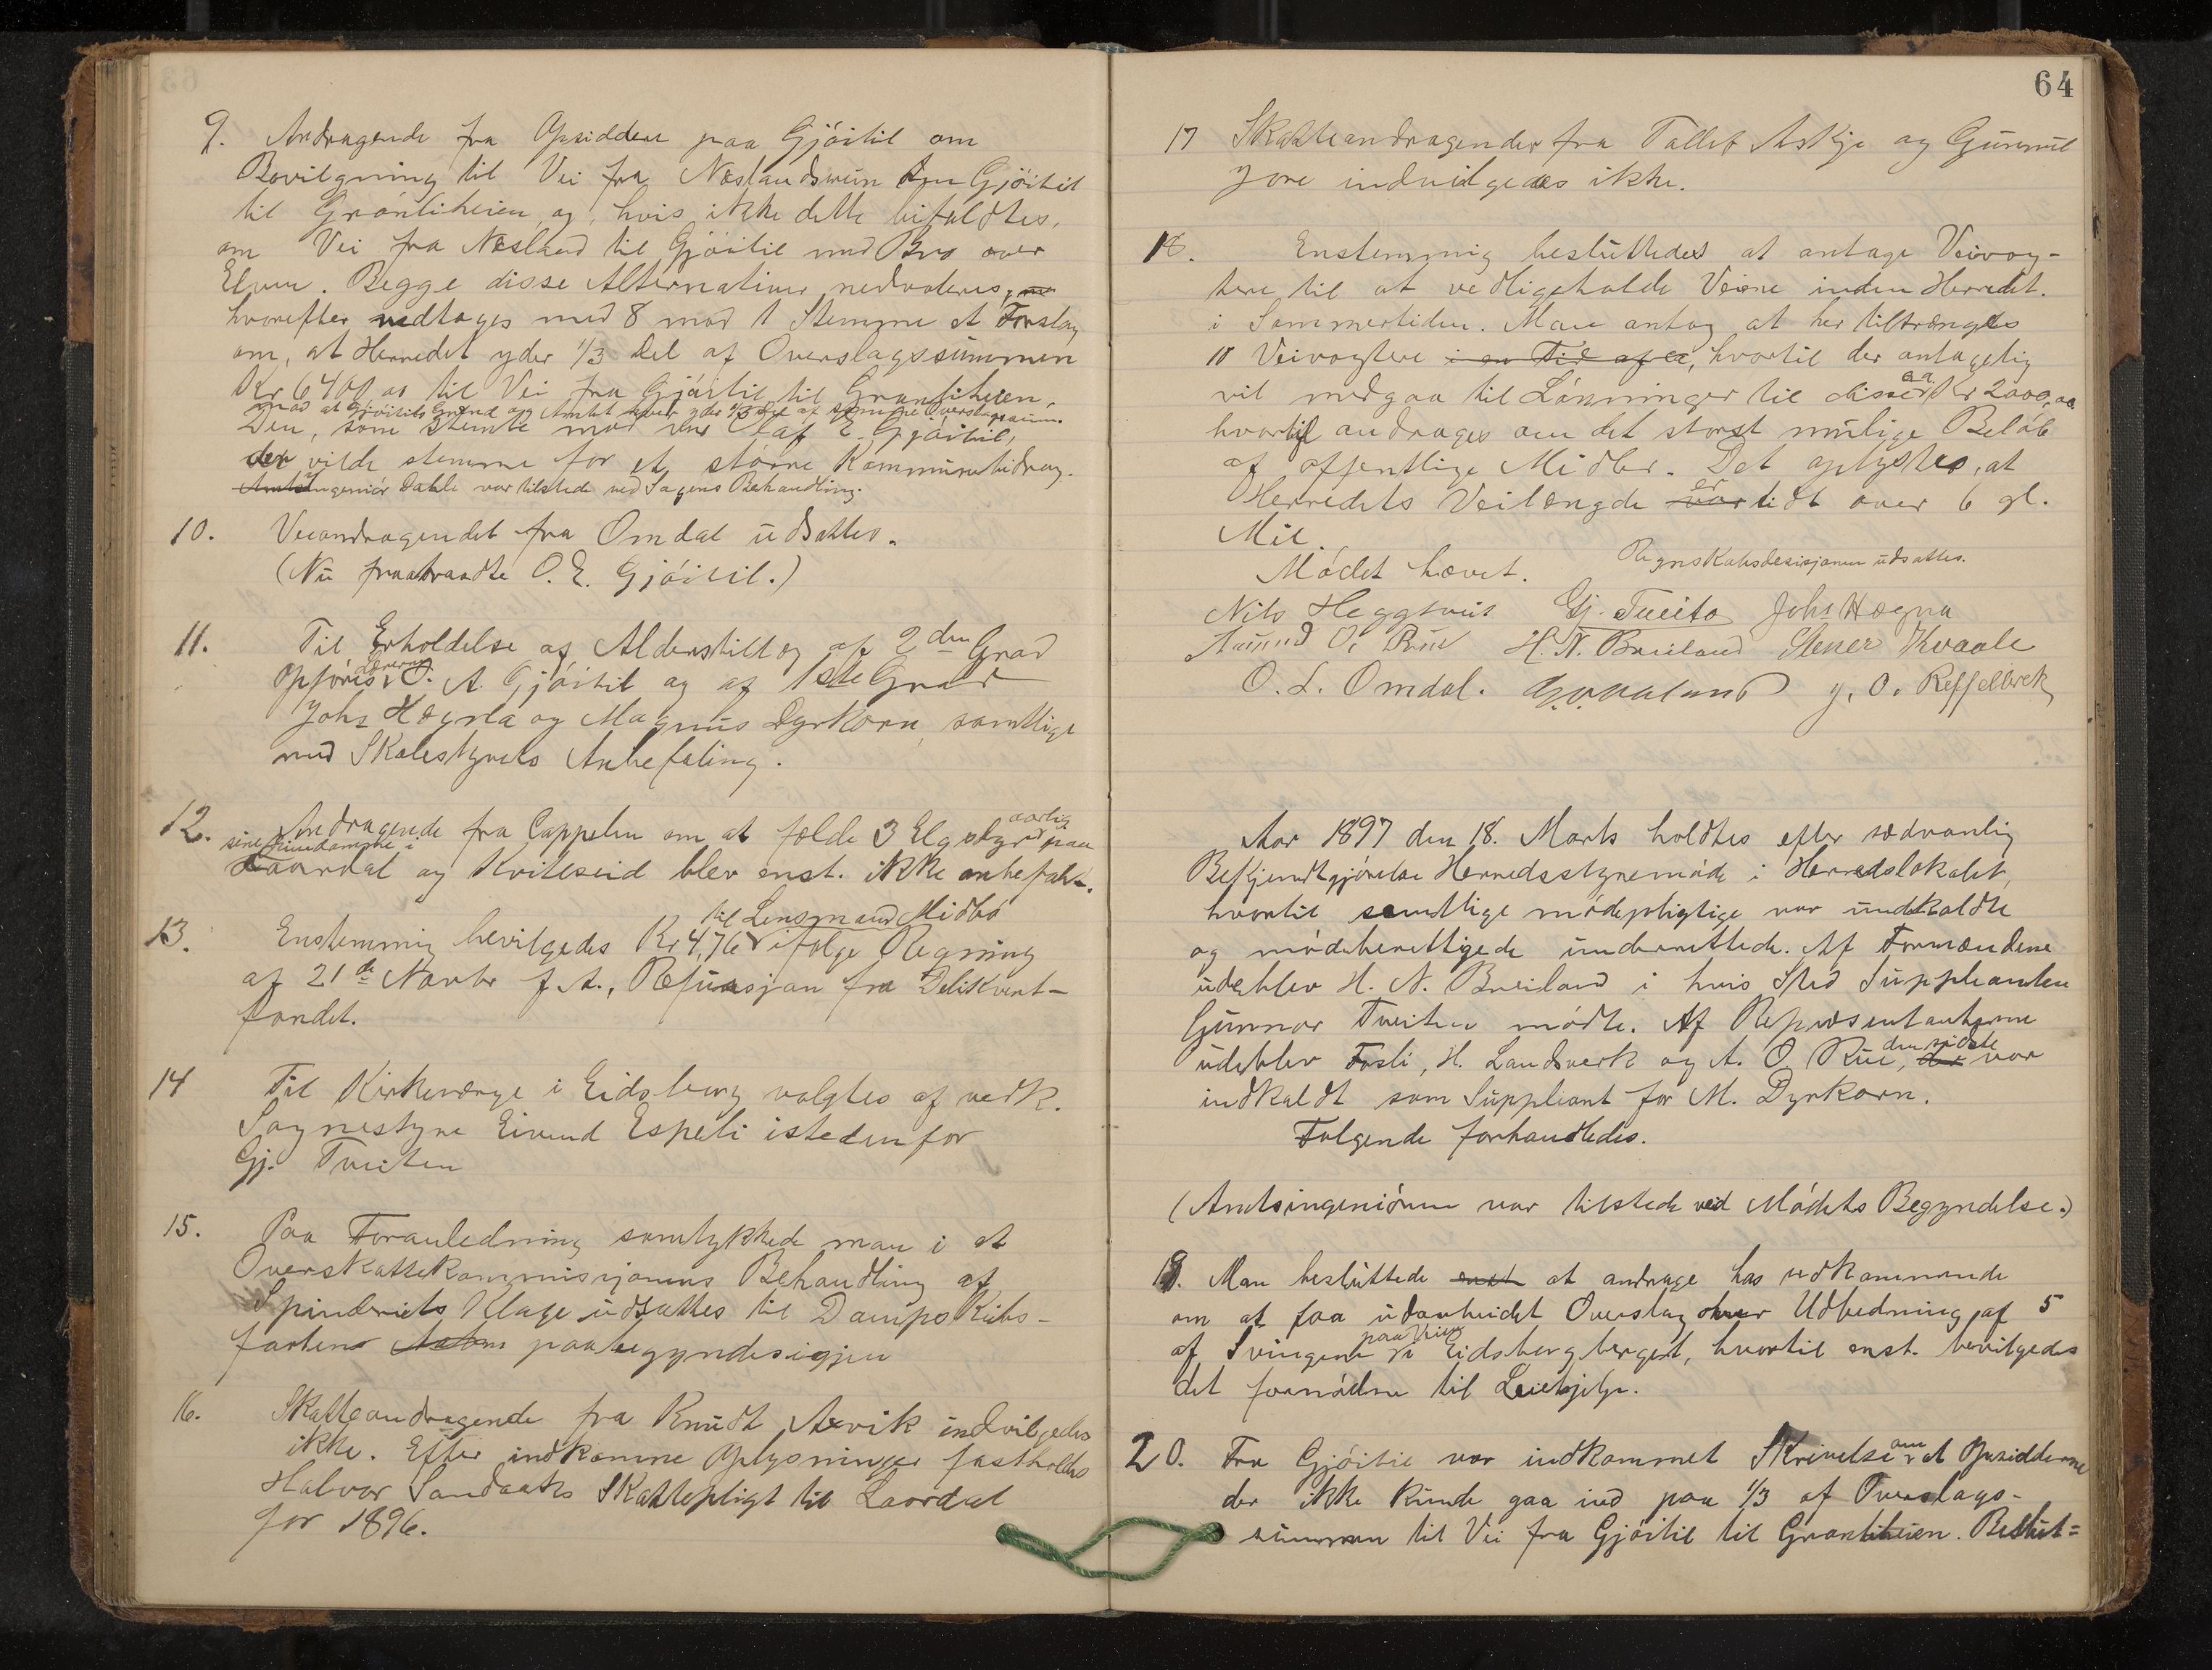 9. Andragende fra Opsiddere paa Gjøitil om
Bevilgning til Vei fra Næslandsmun Gjøitil
til Grønliheien og, hvis ikke dette bifaldtes,
om Vei fra Næsland til Gjøitil med Bro over
Elven. Begge disse Alternativer nedvoteres,
hvorefter vedtoges med 8 mod 1 Stemme et Forslag
om, at Herredet yder 1/3 Del af Overslagssummen
Kr 6400,00 til Vei fra Gjøitil til Grønliheien,
mod at Gjøitils Grend og Amtet hver yder 1/3 Del af samme Overslagssum.
Den, som stemte mod var Olaf E. Gjøitil,
der vilde stemme for et større Kommunebidrag.
Amtsingeniør Dahle var tilstede ved Sagens Behandling.
10. Veiandragendet fra Omdal udsattes.
(Nu fraatraadte O. E. Gjøitil.)
11. Til Erholdelse af Alderstillæg af 2den Grad
opføres Lærerne O. A. Gjøitil og af 1ste Grad
Johs Høgna og Magnus Dyrkorn, samtlige
med Skolestyrets Anbefaling.
12. Andragende fra Cappelen om at fælde 3 Elgsdyr aarlig paa
sine Eiendomme i
Laardal og Kviteseid blev enst. ikke anbefalt.
13. Enstemmig bevilgedes Kr 4,76 til Lensmand Midbø ifølge Regning
af 21de Novbr f. A., Refusjon fra Delikvent-
fondet.
14 Til Kirkeværge i Eidsborg valgtes af vedk.
Sognestyre Eivind Espeli istedenfor
Gj. Tveiten
15. Paa Foranledning samtykkede man i at
Overskattekommissjonens Behandling af
Spinderiets Klage udsattes til Dampskibs-
farten paabegyndes igjen
16. Skatteandragende fra Knudt Arvik indvilgedes
ikke. Efter indkomne Oplysninger fastholdes
Halvor Sandaaks Skattepligt til Laardal
for 1896.
64
17 Skatteandragender fra Tallef Askje og Gunnul
Jore indvilgedes ikke.
18. Enstemmig besluttedes at antage Veivog-
tere til at vedligeholde Veiene inden Herredet.
i Sommertiden. Man antog at her tiltrængtes
10 Veivogtere i en Tid af ca, hvortil der antagelig
vil medgaa til Lønninger til disse ca Kr 2000,00
hvortil andrages om det størst mulige Beløb
af offentlige Midler. Det oplystes, at
Herredets Veilængde var er lidt over 6 gl.
Mil.
Mødet hævet. Regnskabsdesisjonen udsattes.
Nils Heggtveit Gj. Tveito Johs Høgna
Aamund O. Rui H. N. Breiland Stener Kvaale
O. L. Omdal. J. O. Reffelbrek
Aar 1897 den 18. Marts holdtes efter sædvanlig
Bekjendtgjørelse Herredsstyremøde i Herredslokalet,
hvortil samtlige mødepligtige var indkaldte
og mødeberettigede underrettede. Af Formændene
udeblev H. N. Breiland i hvis Sted Suppleanten
Gunnar Tveiten mødte. Af Repræsentanterne
udeblev Fosli, H. Landsverk og A. O. Rui, der den sidste var
indkaldt som Suppleant for M. Dyrkorn.
Følgende forhandledes.
(Amtsingeniøren var tilstede ved Mødets Begyndelse.)
19. Man besluttede enst at andrage hos vedkommende
om at faa udarbeidet Overslag over Udbedning af 5
af Svingene paa Veien i Eidsborgberget, hvortil enst. bevilgedes
det fornødne til Leiehjelp.
20. Fra Gjøitil var indkommet Skrivelse om at Opsidderne
der ikke kunde gaa ind paa 1/3 af Overslags-
summen til Vei fra Gjøitil til Grønliheien. Beslut=